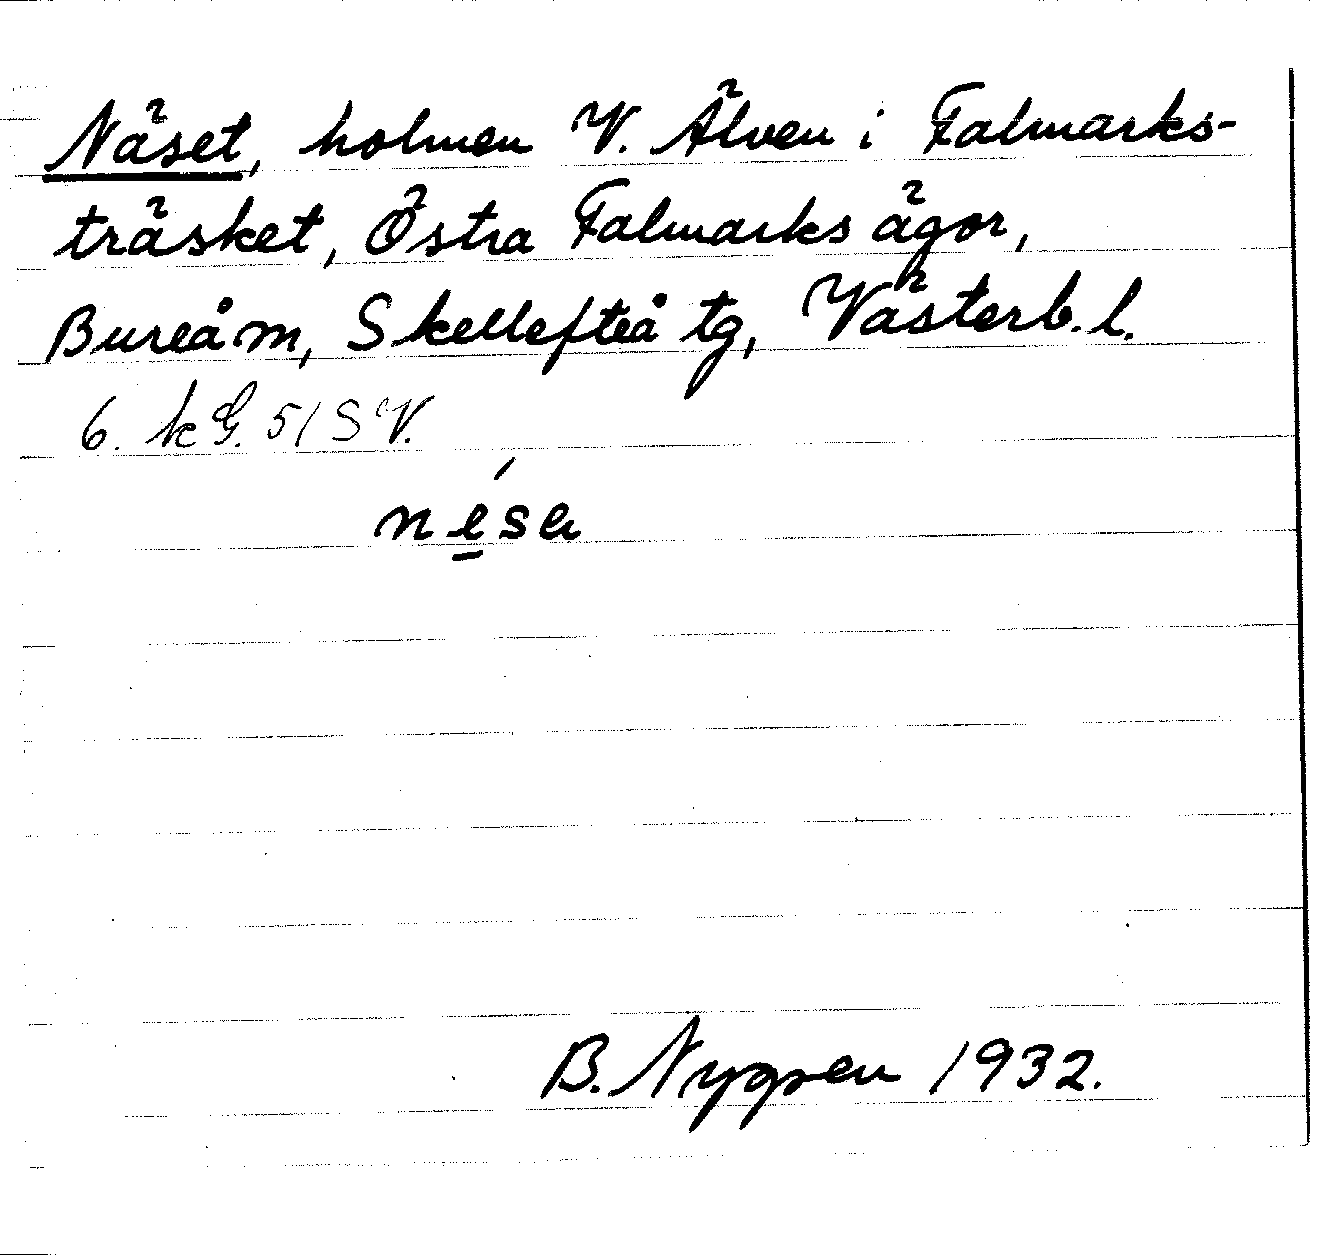 Näset, holmen V. Älven i Falmarks-
träsket, Östra Falmarks ägor,
Bureå m, Skellefteå tg, Västerb. l.
6. kG. 51 S V.
B. Nygren 1932.